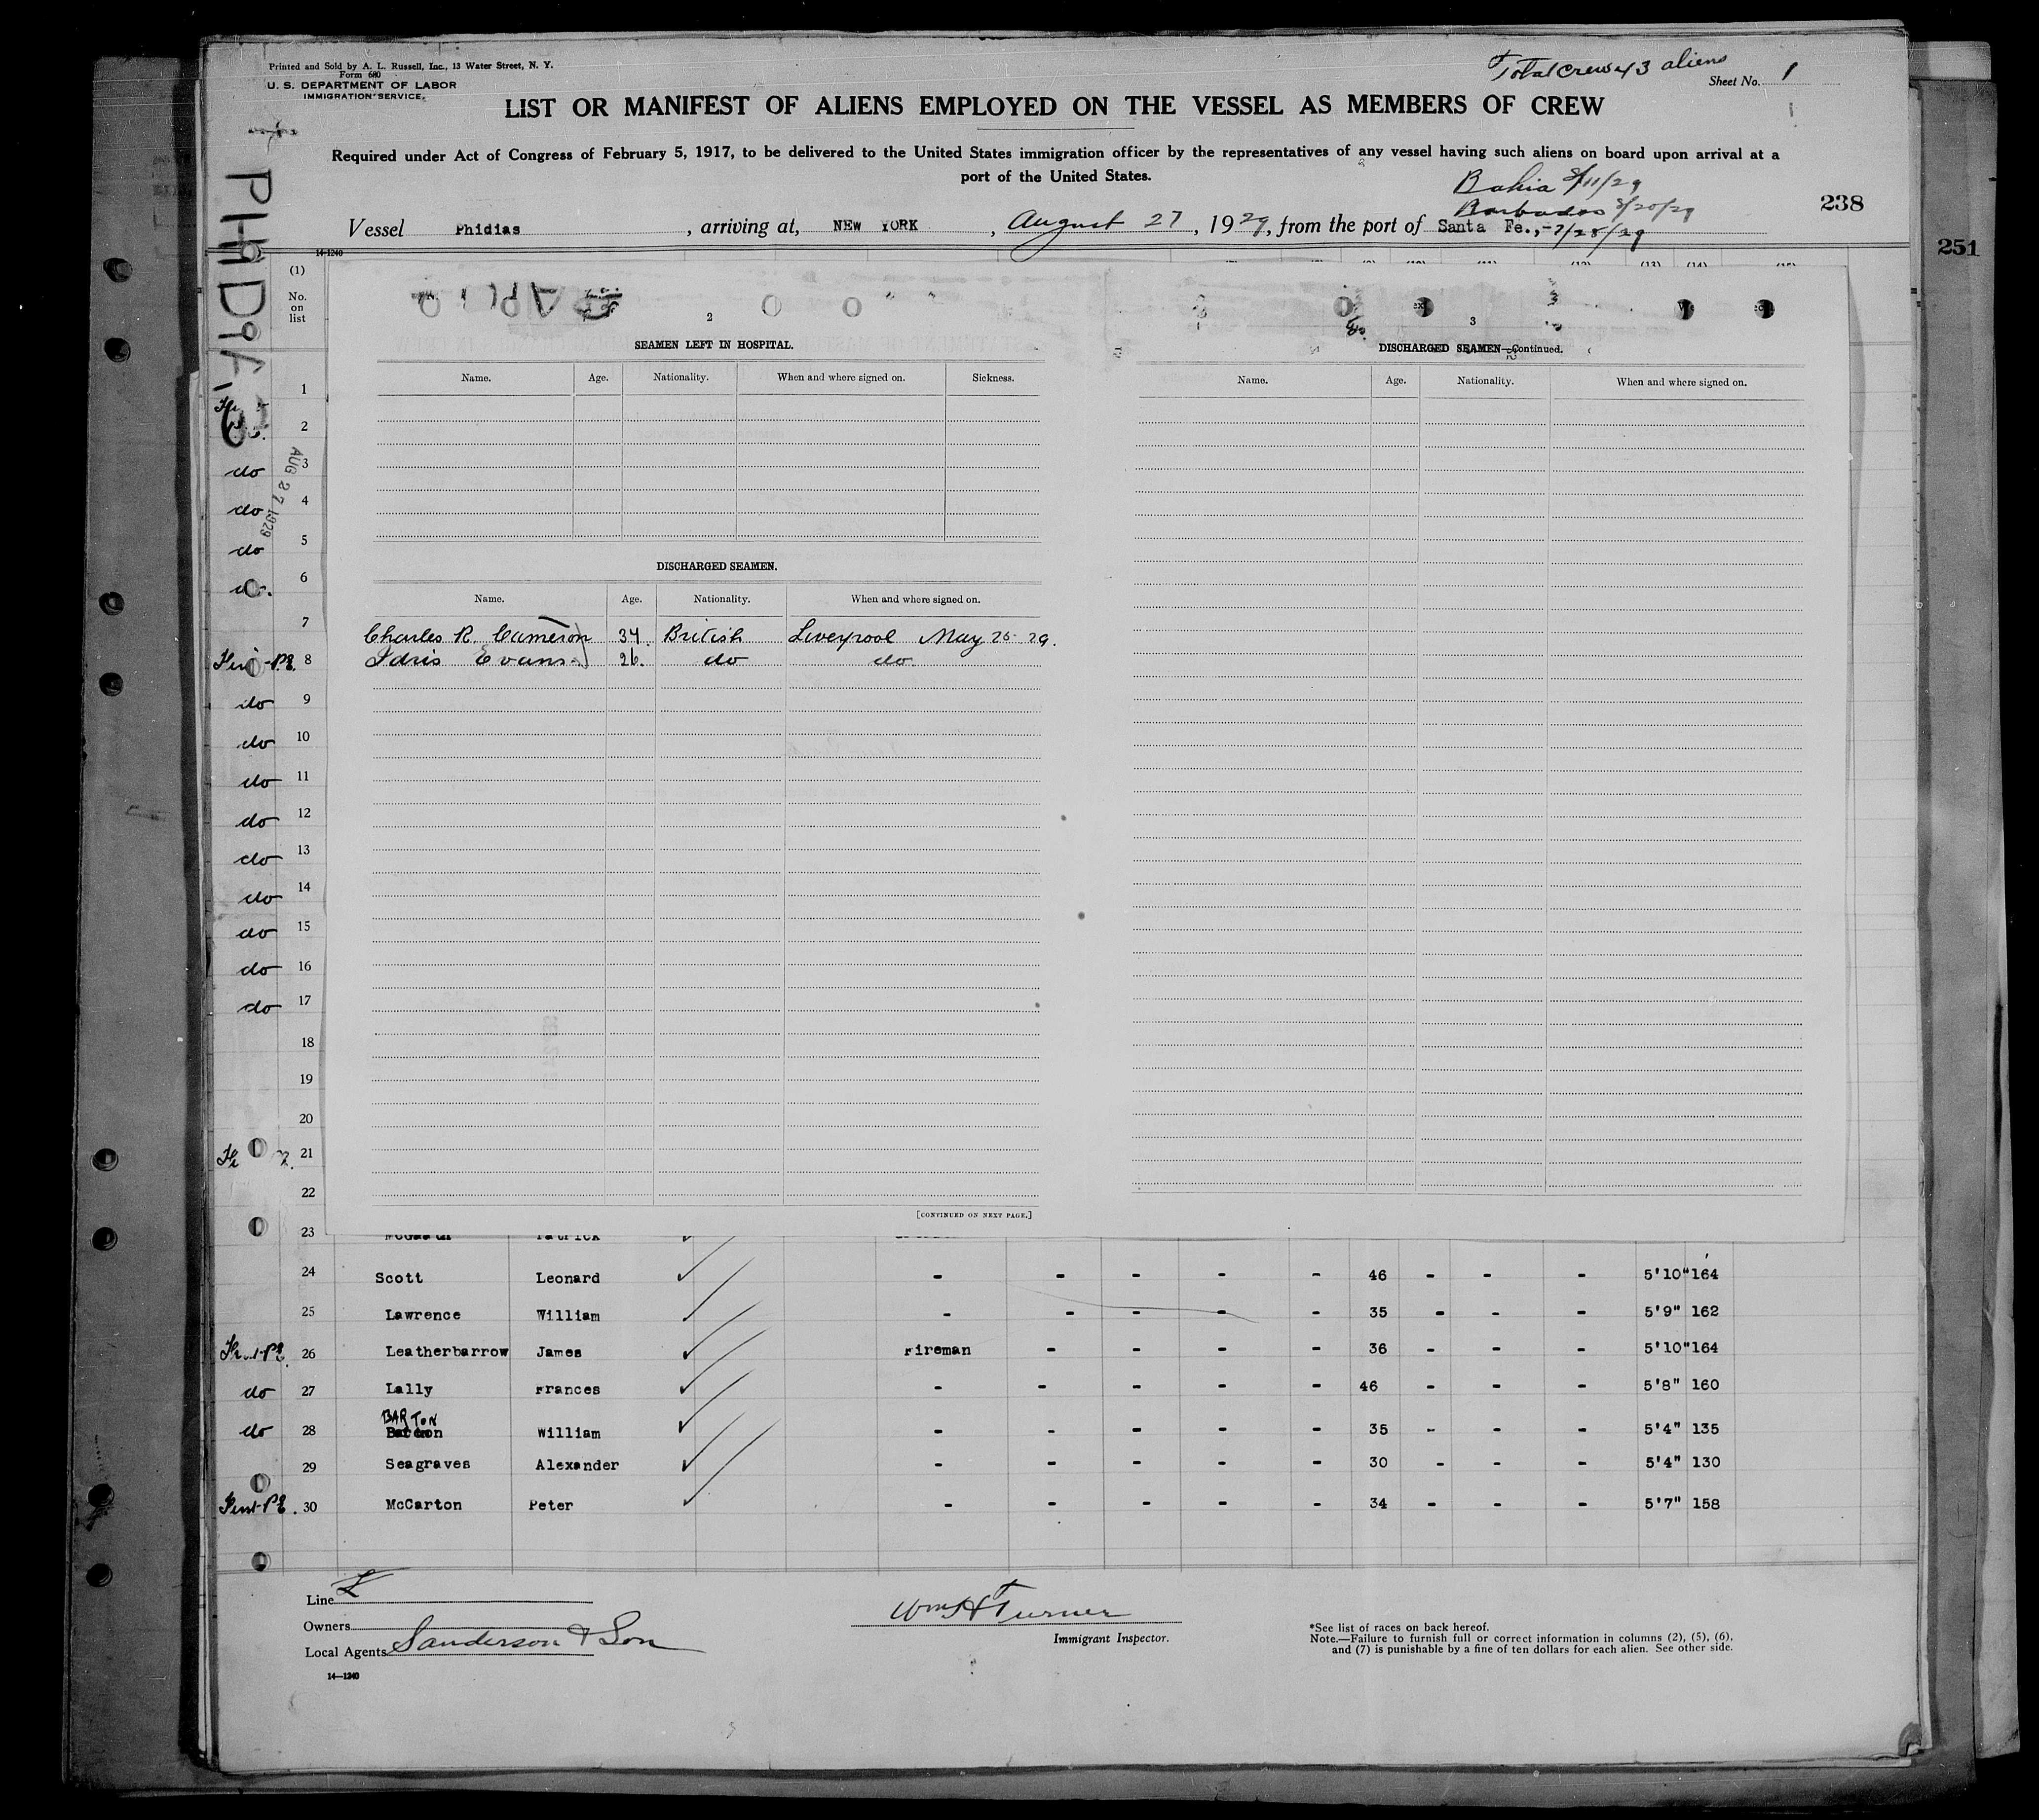 Printed and Sold by A. L. Russell, Inc., 13 Water Street, N. Y.
Form 680
U. S. DEPARTMENT OF LABOR
IMMIGRATION SERVICE.
Total crew 43 aliens
Sheet No. 1
LIST OR MANIFEST OF ALIENS EMPLOYED ON THE VESSEL AS MEMBERS OF CREW
Required under Act of Congress of February 5, 1917, to be delivered to the United States immigration officer by the representatives of any vessel having such aliens on board upon arrival at a
port of the United States.
Bahia 8/11/29
Barbados 8/20/29
238
Vessel Phidias, arriving at, NEW YORK, August 27, 1929, from the port of Santa Fe.,-7/28/29
251
14-1240
(1)
No.
on
list
AUG 27 1929
2
SEAMEN LEFT IN HOSPITAL.
Name. Age. Nationality. When and where signed on. Sickness.
DISCHARGED SEAMEN.
Name. Age. Nationality. When and where signed on.
Charles R. Cameron 34. British Liverpool May 25 29.
Idris Evans 26. do do
[CONTINUED ON NEXT PAGE.]
3
DISCHARGED SEAMEN—Continued.
Name. Age. Nationality. When and where signed on.
1
2
do 3
do 4
do 5
6
7
8
do 9
do 10
do 11
do 12
do 13
do 14
do 15
do 16
do 17
18
19
20
21
22
23 Patrick
24 Scott Leonard - - - - - 46 - - - 5'10" 164
25 Lawrence William - - - - - 35 - - - 5'9" 162
26 Leatherbarrow James Fireman - - - - 36 - - - 5'10" 164
do 27 Lally Frances - - - - - 46 - - - 5'8" 160
BARTON
do 28 William - - - - - 35 - - - 5'4" 135
29 Seagraves Alexander - - - - - 30 - - - 5'4" 130
30 McCarton Peter - - - - - 34 - - - 5'7" 158
Line L
Owners
Local Agents Sanderson & Son
14—1240
Wm H Turner
Immigrant Inspector.
*See list of races on back hereof.
Note.—Failure to furnish full or correct information in columns (2), (5), (6),
and (7) is punishable by a fine of ten dollars for each alien. See other side.